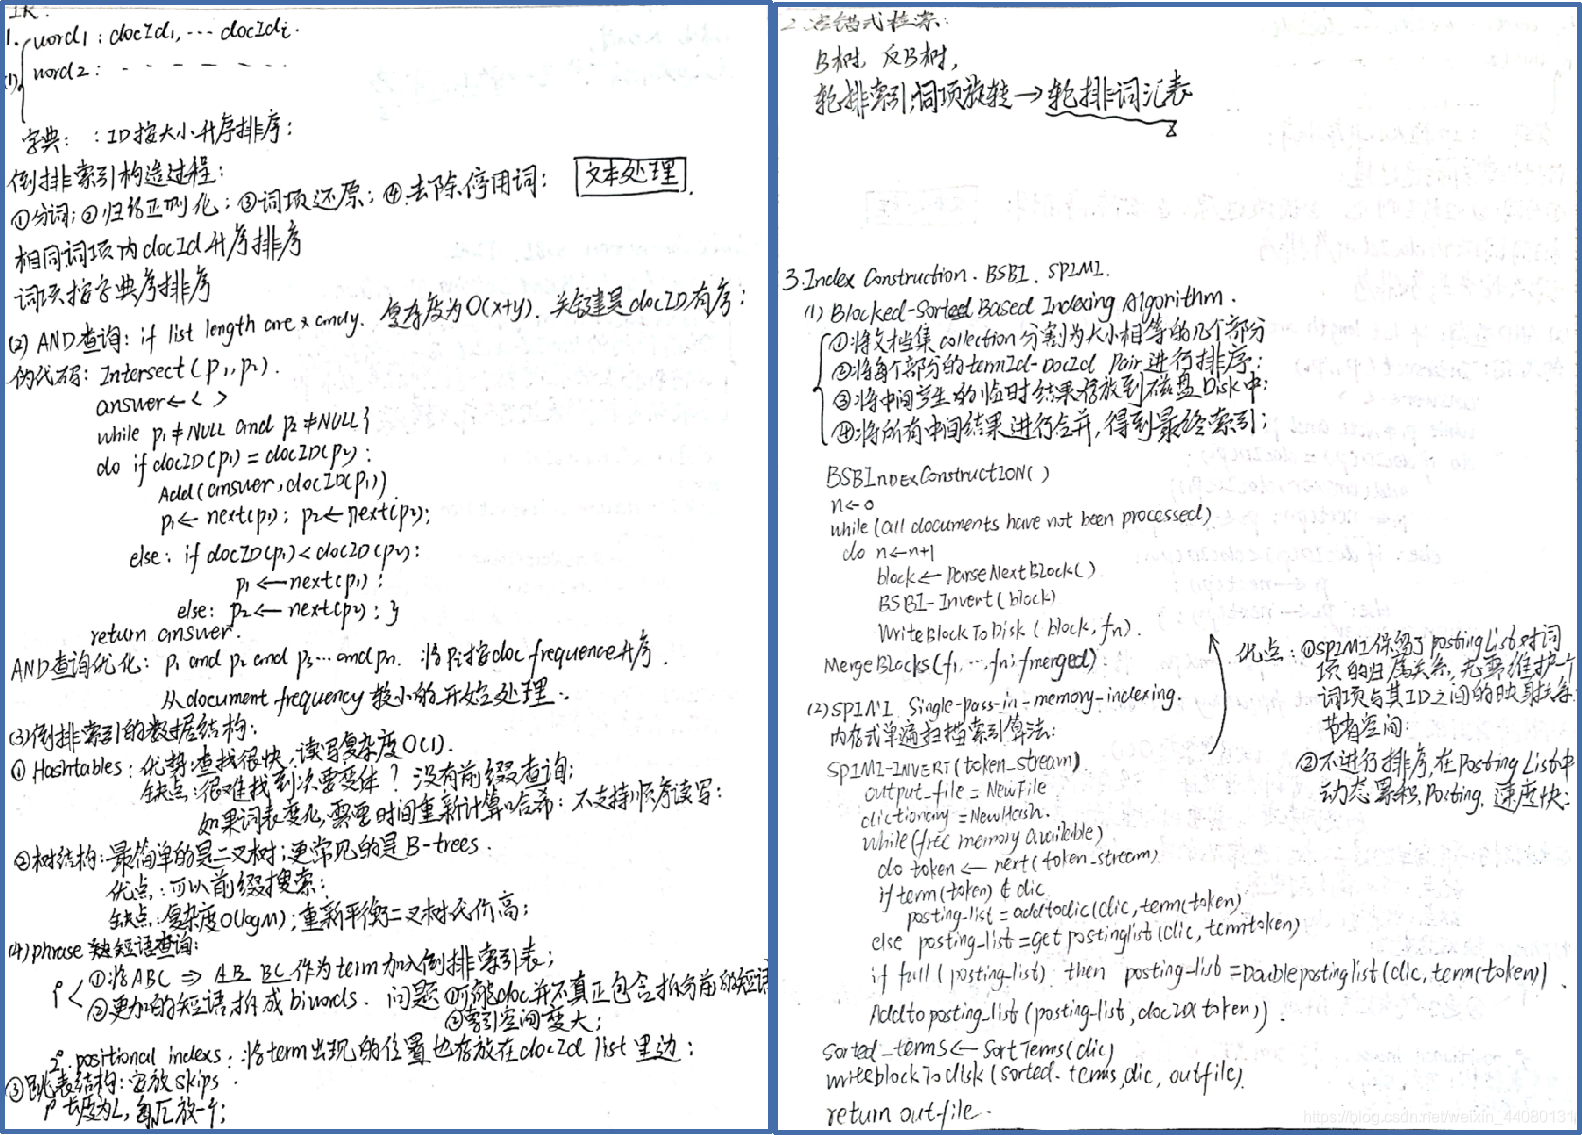 IR.
1. word1: docId1, ... docIdi.
(1) word2: - - - - - -
字典: : ID按大小升序排序:
倒排索引构造过程:
①分词; ②归一正则化; ③词项还原; ④去除停用词: 文本处理.
相同词项内docId升序排序
词项按字典序排序
(2) AND查询: if list length are x and y. 复杂度为O(x+y). 关键是docID有序:
伪代码: Intersect(p1, p2).
answer←< >
while p1≠NULL and p2≠NULL{
do if docID(p1)=docID(p2):
Add(answer, docID(p1))
p1← next(p1); p2←next(p2);
else: if docID(p1)<docID(p2):
p1←next(p1):
else: p2← next(p2); }
return answer.
AND查询优化: p1 and p2 and p3... and pn. 将pi按doc frequence升序.
从document frequency较小的开始处理.
(3)倒排索引的数据结构:
① Hashtables: 优势:查找很快, 读写复杂度O(1).
缺点:很难找到次要变体? 没有前缀查询;
如果词表变化, 需要时间重新计算哈希: 不支持顺序读写:
②树结构: 最简单的是二叉树; 更常见的是B-trees.
优点: 可以前缀搜索:
缺点:复杂度O(logM); 重新平衡二叉树代价高;
(4) phrase 短语查询:
1° ①将ABC ⇒ AB BC作为term加入倒排索引表;
②更加的短语拆成biwords. 问题①可能doc并不真正包含拆分前的短语
②索引空间变大;
2°. positional indexs: 将term出现的位置也存放在docId list里边:
③跳表结构: 安放skips
1° 长度为L, 每√L放一个;
2. 容错式检索:
B树, 反B树,
轮排索引,词项旋转→轮排词汇表
3.Index Construction. BSBI. SPIMI.
(1) Blocked-Sorted Based Indexing Algorithm.
①将文档集collection分割为大小相等的几个部分
②将每个部分的termId-DocId Pair进行排序:
③将中间产生的临时结果存放到磁盘Disk中:
④将所有中间结果进行合并, 得到最终索引;
BSBIndexConstructION()
n←0
while(all documents have not been processed)
do n←n+1
block←ParseNextBlock()
BSBI-Invert(block)
WriteBlockToDisk(block, fn).
MergeBlocks(f1, ..., fn; fmerged):
(2) SPIMI. Single-pass-in-memory-indexing.
内存式单遍扫描索引算法:
SPIMI-INVERT(token_stream).
output_file = NewFile
dictionary=NewHash.
while(free memory available)
do token← next(token_stream)
if term(token) ∉ dic
posting_list = addtodic(dic, term(token)
else posting_list =get postinglist(dic, term(token)
if full(posting_list) then posting_list =Doublepostinglist(dic, term(token)).
Addtoposting_list(posting_list, docID(token)).
sorted_terms←SortTerms(dic)
writeblockToDisk(sorted_terms,dic, outfile).
return outfile.
优点: ①SPIMI保留了postingList对词
项的归属关系, 无需维护个
词项与其ID之间的映射关系:
节省空间:
②不进行排序, 在PostingList中
动态累积, Posting. 速度快:
https://blog.csdn.net/weixin_44080131